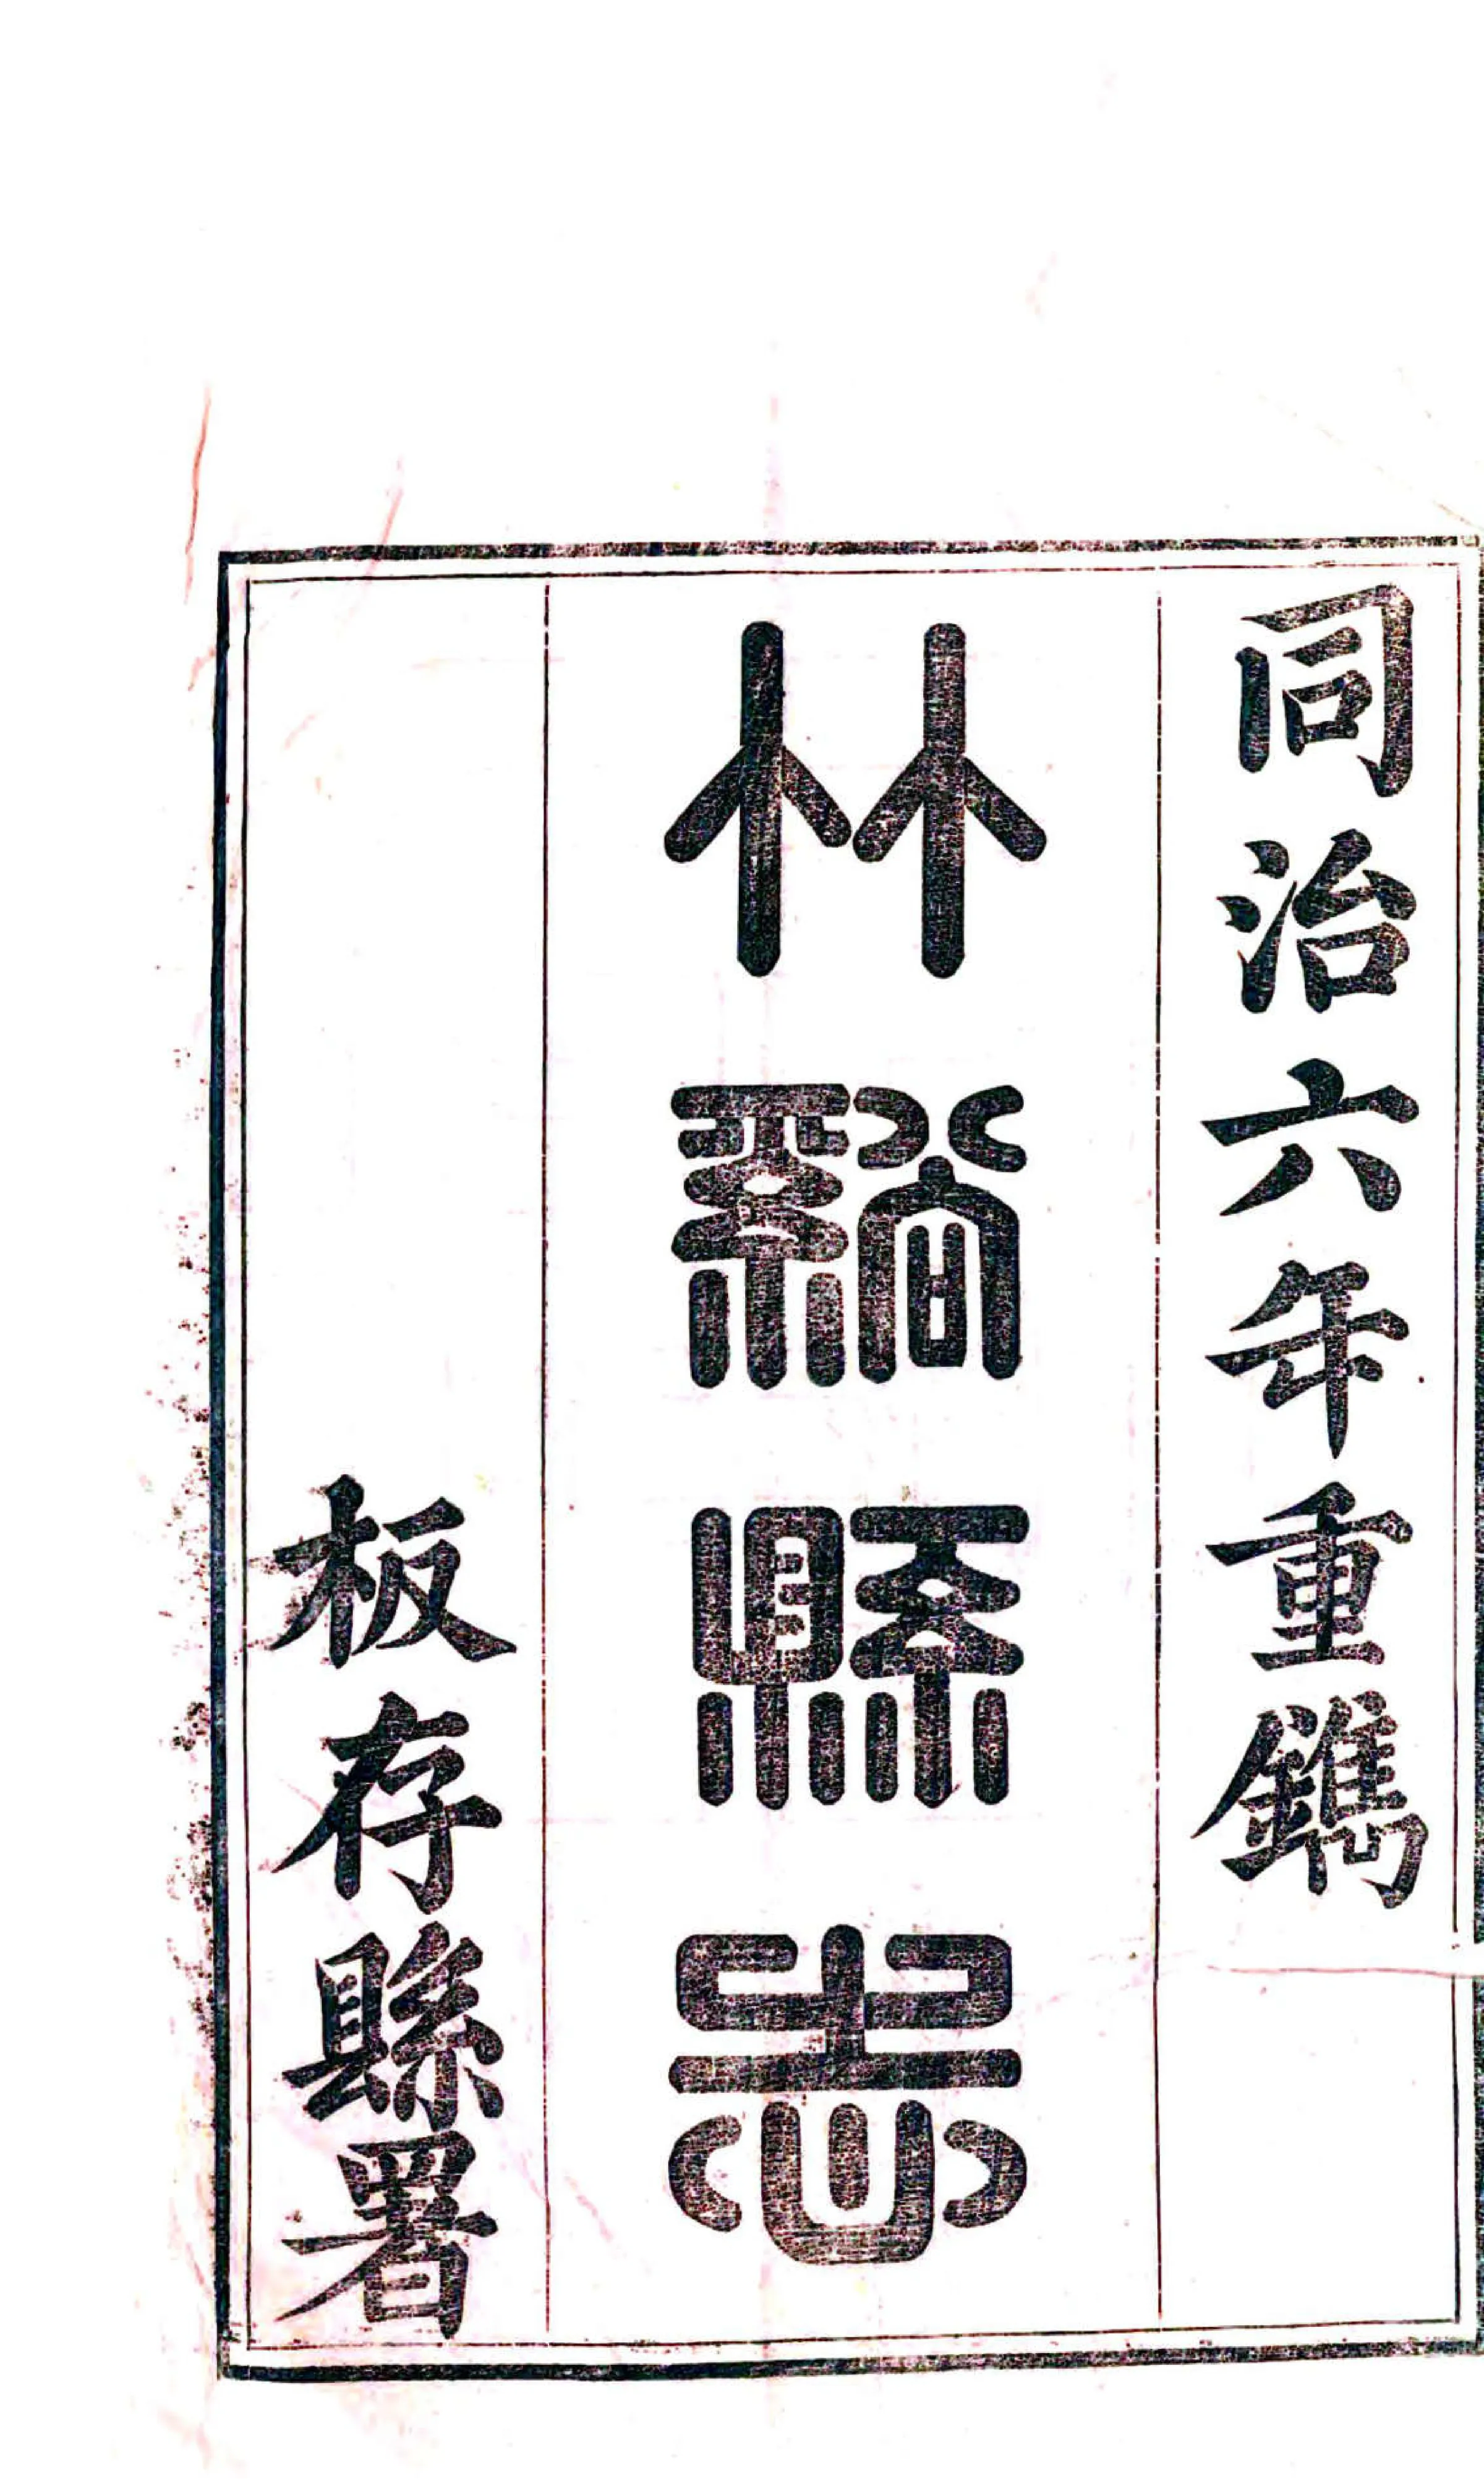 同治六年重鐫
竹谿縣志
板存縣署